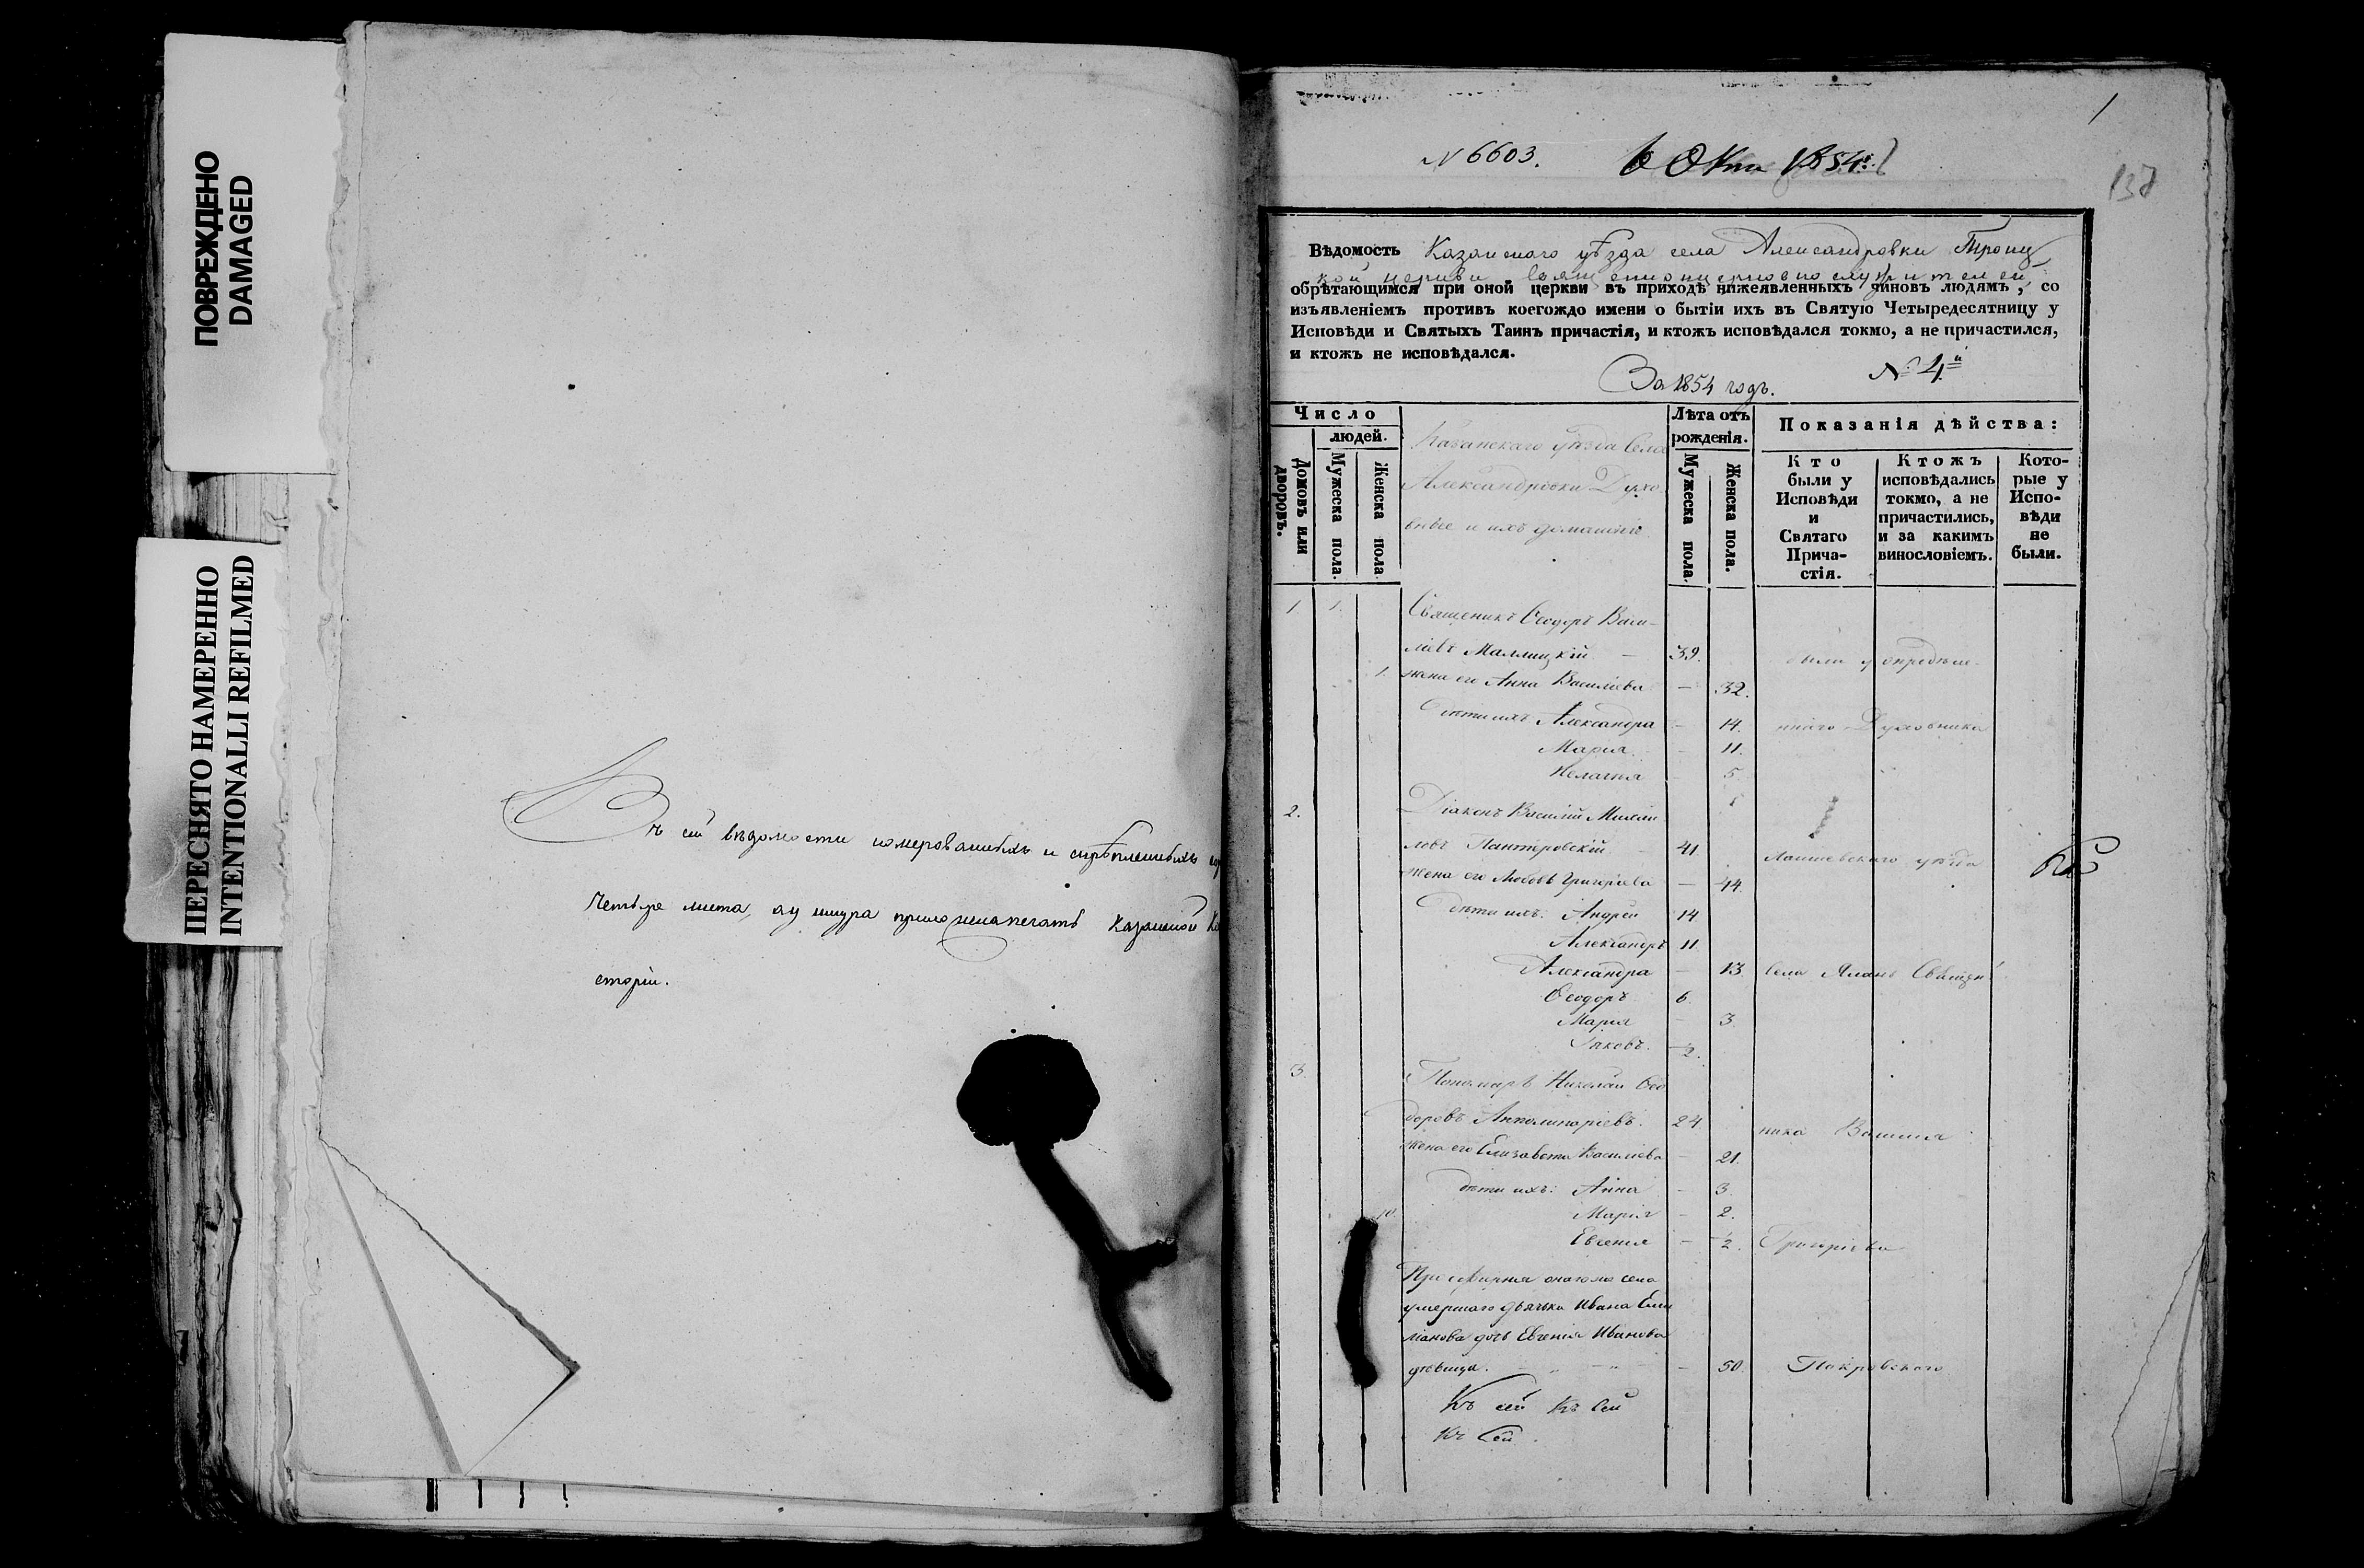 ПОВРЕЖДЕНО
DAMAGED
ПЕРЕСНЯТО НАМЕРЕННО
INTENTIONALLI REFILMED
Въ сей вѣдомости номерованныхъ и скрѣпленныхъ
Четыре листа, а у шнура приложена печать Казанской
сторіи.
1
N 6603. 6 Окт 1854.
138
Вѣдомость Казанскаго уѣзда села Александровки Троиц
кой церкви священноцерковнослужителей
обрѣтающимся при оной церкви въ приходѣ нижеявленныхъ чиновъ людямъ, со
изъявленіемъ противъ коегождо имени о бытіи ихъ въ Святую Четыредесятницу у
Исповѣди и Святыхъ Таинъ причастія, и ктожъ исповѣдался токмо, а не причастился,
и ктожъ не исповѣдался.
За 1854 годъ. № 4й
Число
людей.
Домовъ или дворовъ.
Мужеска пола.
Женска пола
Казанскаго уѣзда Села
Александровки Духо
вные и ихъ домашніе
Лѣта отъ
рожденія.
Мужеска пола
Женска пола.
Показанія дѣйства:
Кто
были у
Исповѣди
и
Святаго
Прича-
стія.
Ктожъ
исповѣдались
токмо, а не
причастились,
и за какимъ
винословіемъ.
Кото-
рые у
Испо-
вѣди
не
были.
1 1. Священикъ Ѳеодоръ Васи-
ліевъ Малмицкій — 39. были у опредѣле-
1. жена его Анна Василіева — 32.
Дѣти ихъ Александра — 14. ннаго Духовника
Марія — 11.
Пелагія — 5
2. Діаконъ Василій Михаи
ловъ Пантеровскій 41 Лаишевскаго уѣзда
жена его Любовь Григоріева — 44.
Дѣти ихъ: Андрей 14
Александръ 11
Александра — 13. Села Алань Священ
Ѳеодоръ 6.
Марія — 3.
Іаковъ. ½.
3 Пономарь Николай Ѳео
доровъ Апполинаріевъ. 24 ника Василія
жена его Елизавета Василіева — 21.
дѣти ихъ: Анна — 3.
10. Марія — 2.
Евгенія — ½. Григоріева
Просфирня онаго же села
умершаго дьячка Ивана Еми
ліанова дочь Евгенія Иванова
дѣвица. — 50. Покровскаго
Къ сей Къ Сей
Къ Сей.